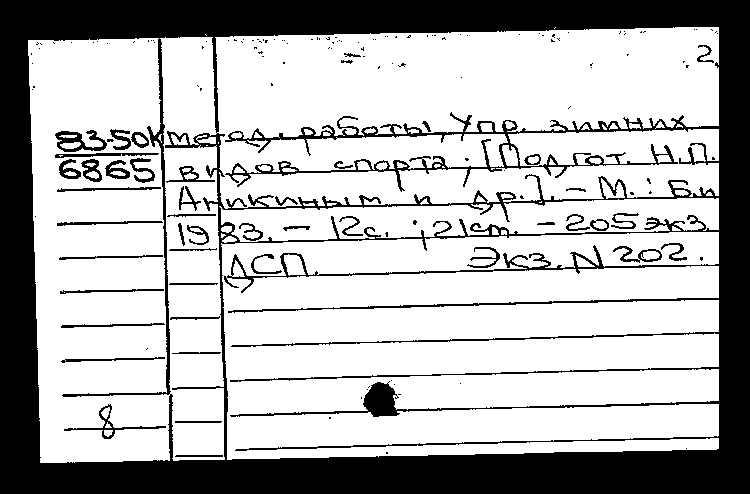 2
83-50к метод. работы, Упр. зимних
6865 видов спорта; [Подгот. Н.П.
Аникиным и др.]. - М.: Б.и
1983. - 12с. ; 21см. - 205экз
ДСП. Экз. N 202.
8